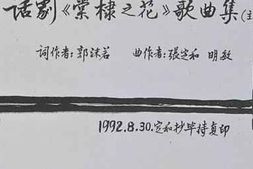 话剧《棠棣之花》歌曲集(主
词作者：郭沫若 曲作者：张定和 明敏
1992.8.30.定和抄毕持复印